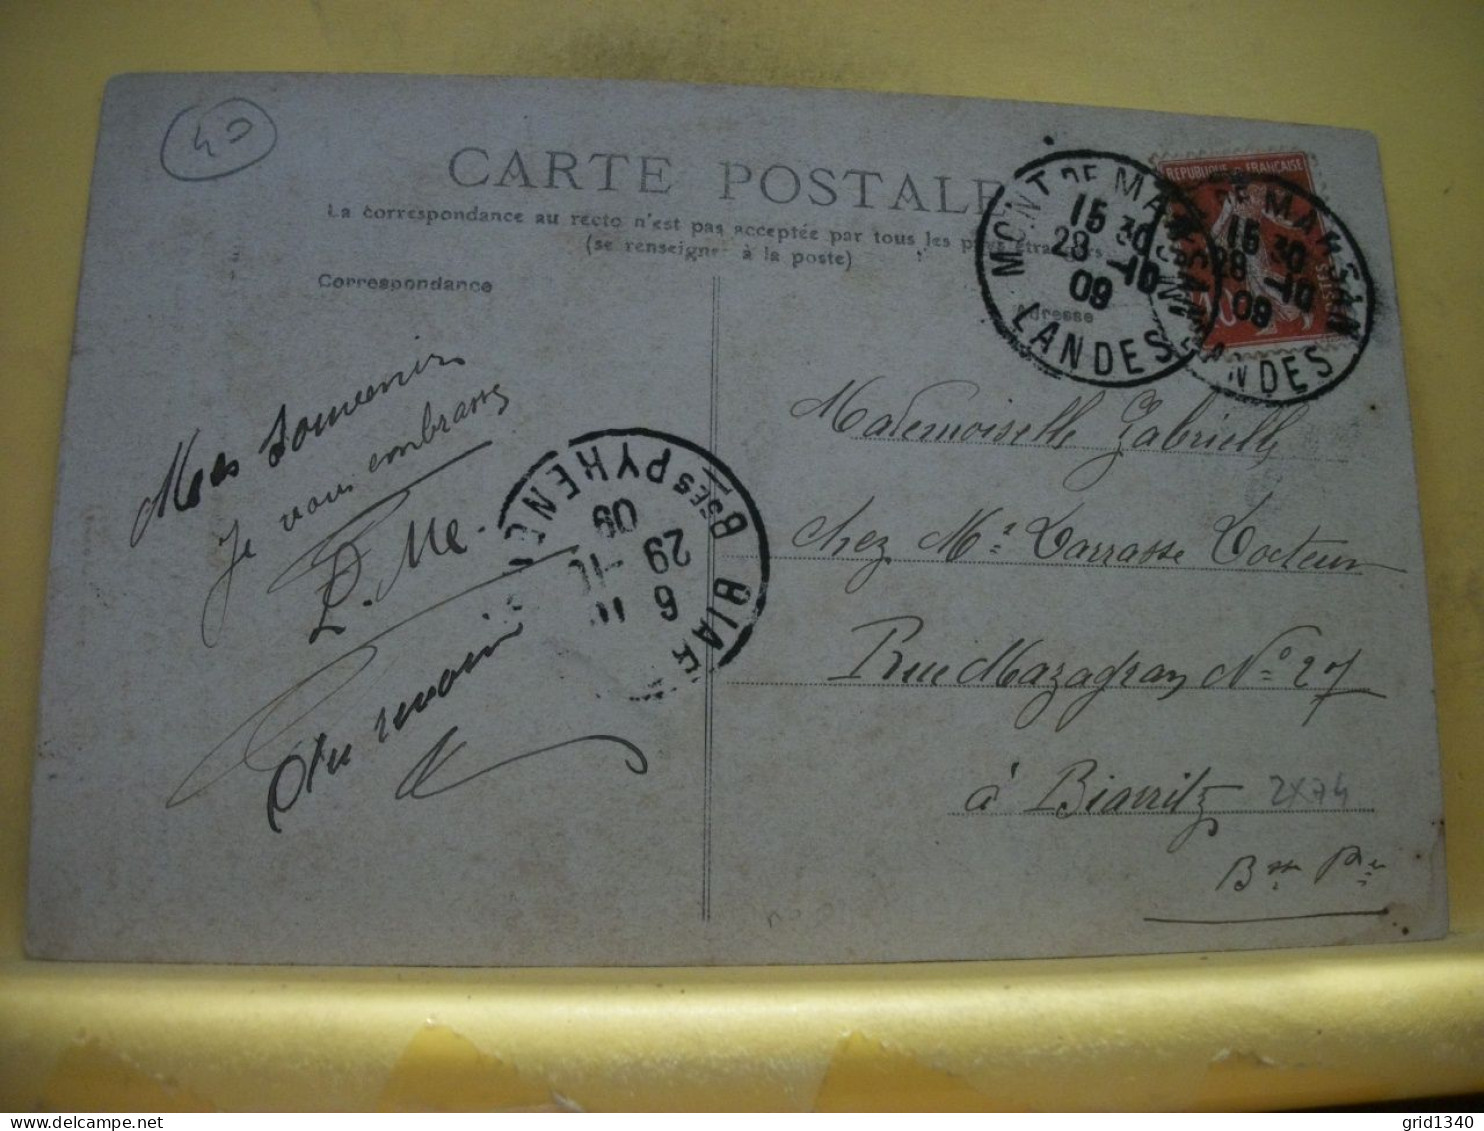 40
CARTE POSTALE
La correspondance au recto n'est pas acceptée par tous les pays étrangers
(se renseigner à la poste)
Correspondance
Adresse
REPUBLIQUE FRANÇAISE
MONT DE MARSAN
15 30
28 -10
09
LANDES
DE MARSAN
15 30
28 -10
09
LANDES
Mes souvenirs
Je vous embrasse
Mademoiselle Gabrielle
chez Mr Larrasse Docteur
Rue Mazagran No 27
à Biarritz
2x74
Bsses Pées
BIAR
6
29 -10
09
Bses PYRENE
grid1340